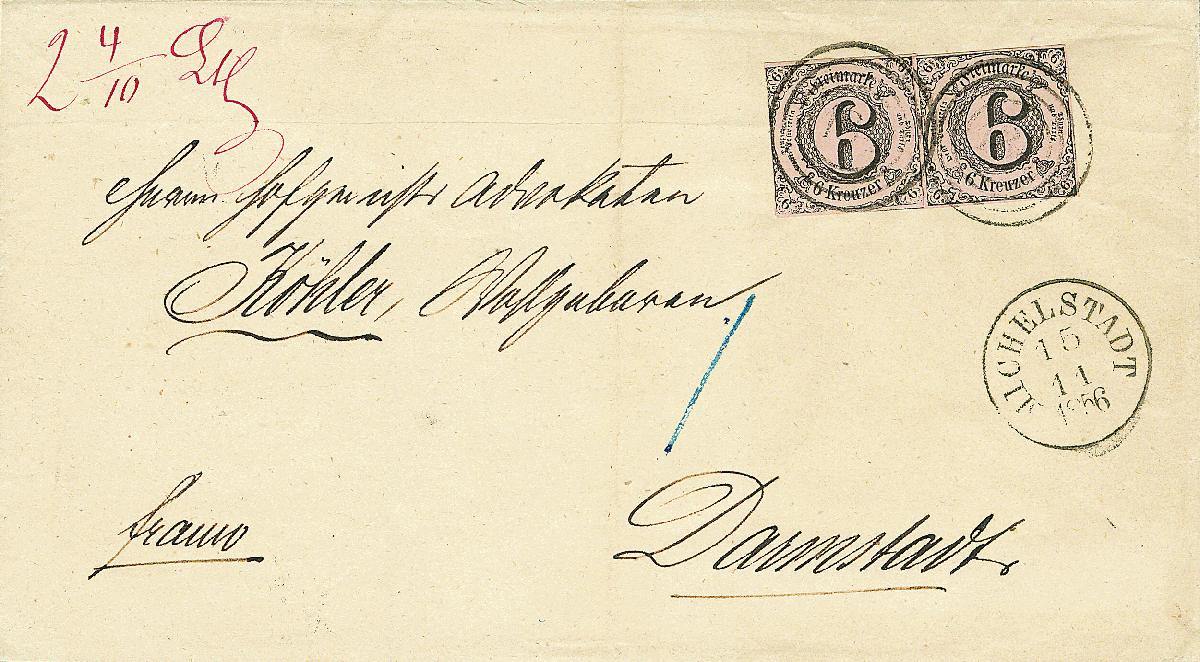 2 4/10 Lth
Freimarke 6 6 Kreuzer
Freimarke 6 6 Kreuzer
Herrn Hofgerichts Advokaten
Köhler, Wohlgeboren
MICHELSTADT
15
11
1856
franco
Darmstadt.